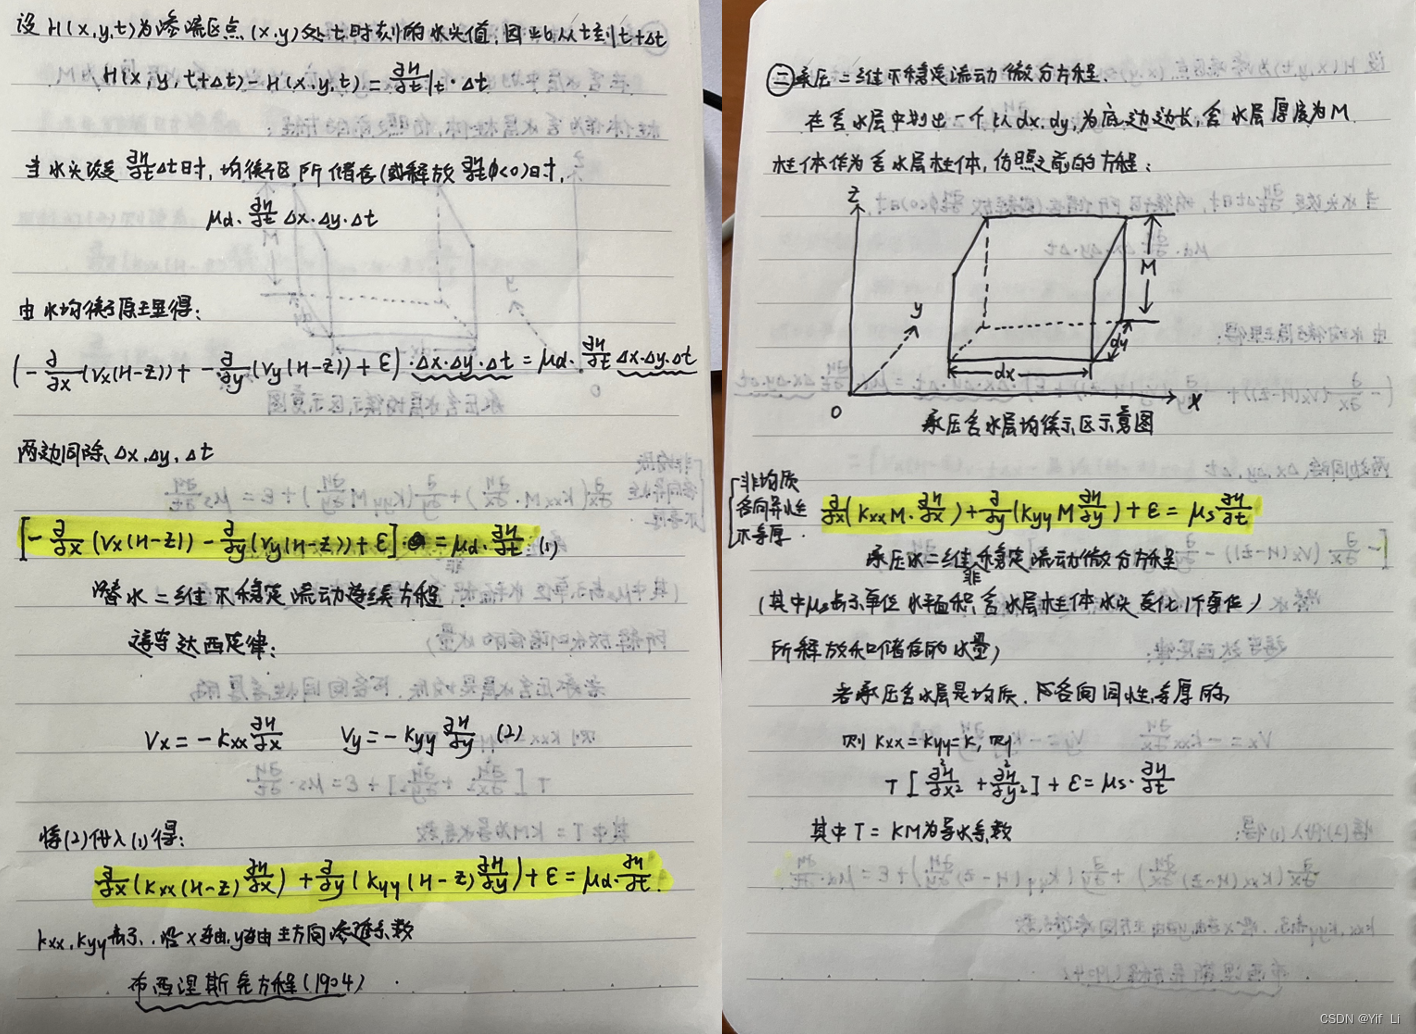 设H(x,y,t)为渗流区点(x,y)处t时刻的水头值,因此从t到t+Δt
H(x,y,t+Δt)-H(x,y,t)=∂H/∂t|t·Δt
当水头改变∂H/∂tΔt时,均衡区所储存(或释放∂H/∂t<0)时,
μd·∂H/∂t Δx·Δy·Δt
由水均衡原理得:
(-∂/∂x(Vx(H-Z))+-∂/∂y(Vy(H-Z))+ε)·Δx·Δy·Δt=μd·∂H/∂t Δx·Δy·Δt
两边同除Δx,Δy,Δt
[-∂/∂x(Vx(H-Z))-∂/∂y(Vy(H-Z))+ε]·=μd·∂H/∂t (1)
潜水二维不稳定流动连续方程.
达西定律:
Vx=-Kxx∂H/∂x Vy=-Kyy∂H/∂y (2)
将(2)代入(1)得:
∂/∂x(Kxx(H-Z)∂H/∂x)+∂/∂y(Kyy(H-Z)∂H/∂y)+ε=μd·∂H/∂t
Kxx,Kyy表示..沿x轴,y轴主方向渗透系数
布西涅斯克方程(1904)
㊁承压二维不稳定流动微分方程.
在含水层中划出一个以dx.dy,为底边边长,含水层厚度为M
柱体作为含水层柱体,仿照之前的方程:
z
y
M
dy
dx
0
x
承压含水层均衡示区示意图
非均质
各向异性
不等厚.
∂/∂x(KxxM·∂H/∂x)+∂/∂y(KyyM∂H/∂y)+ε=μs∂H/∂t
承压水二维非稳定流动微分方程
(其中μs表示单位水平面积,含水层柱体水头变化1个单位)
所释放和储存的水量)
若承压含水层是均质.各向同性,等厚的,
则Kxx=Kyy=K,则
T[∂²H/∂x²+∂²H/∂y²]+ε=μs·∂H/∂t
其中T=KM为导水系数
CSDN @Yif Li